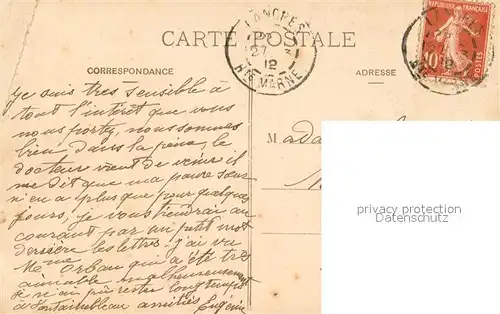 CARTE POSTALE
LANGRES
27
12
HTE MARNE
REPUBLIQUE FRANÇAISE
10
POSTES
CORRESPONDANCE
ADRESSE
Je suis très sensible a
tout l'intérêt que vous
nous portez, nous sommes
bien dans la peine, le
docteur vient de venir il
me dit que ma pauvre sœur
n'en a plus que pour quelques
jours, je vous tiendrai au
courant par un petit mot
dernière les lettres j'ai vu
Me Orban qui a été très
aimable malheureusement
je n'ai pu rester longtemps
a Fontainebleau amitiés Eugénie
Mada
privacy protection
Datenschutz